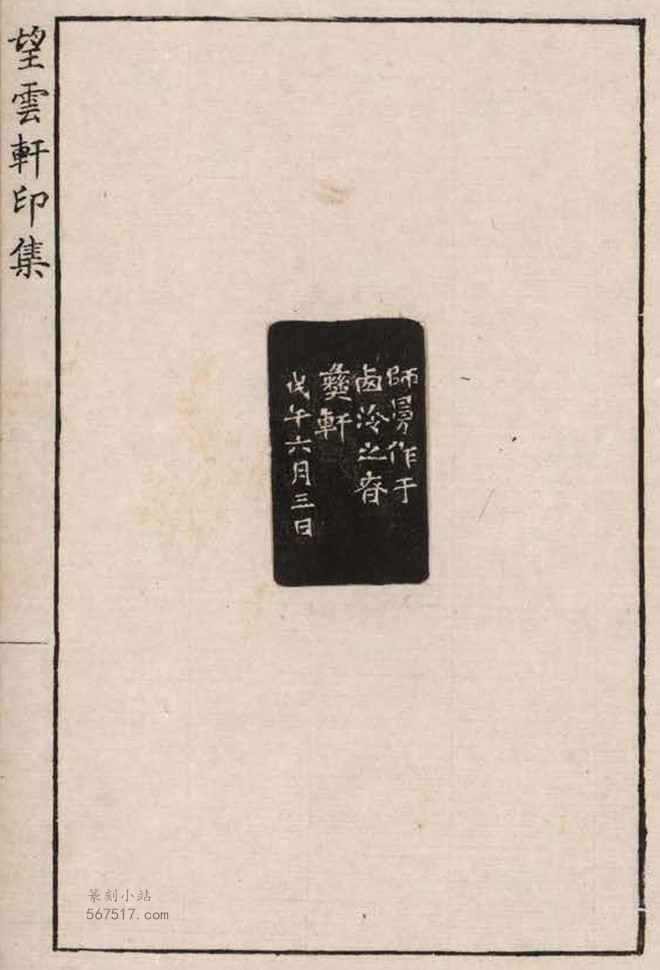 望雲軒印集
師作于
卥泠之眘
彝軒
戊午六月三日
篆刻小站
567517.com